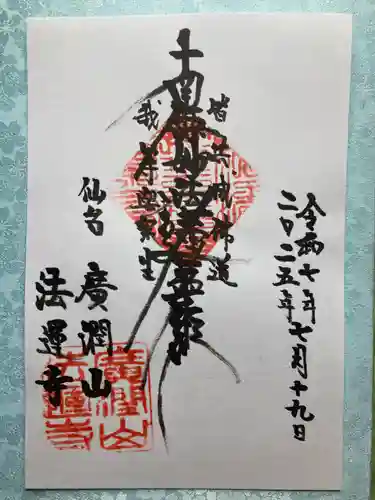 令和七年
二〇二五年七月十九日
皆共成佛道
南無妙法蓮華経
我等與衆生
仙台
廣潤山
法運寺
廣潤山
法運寺